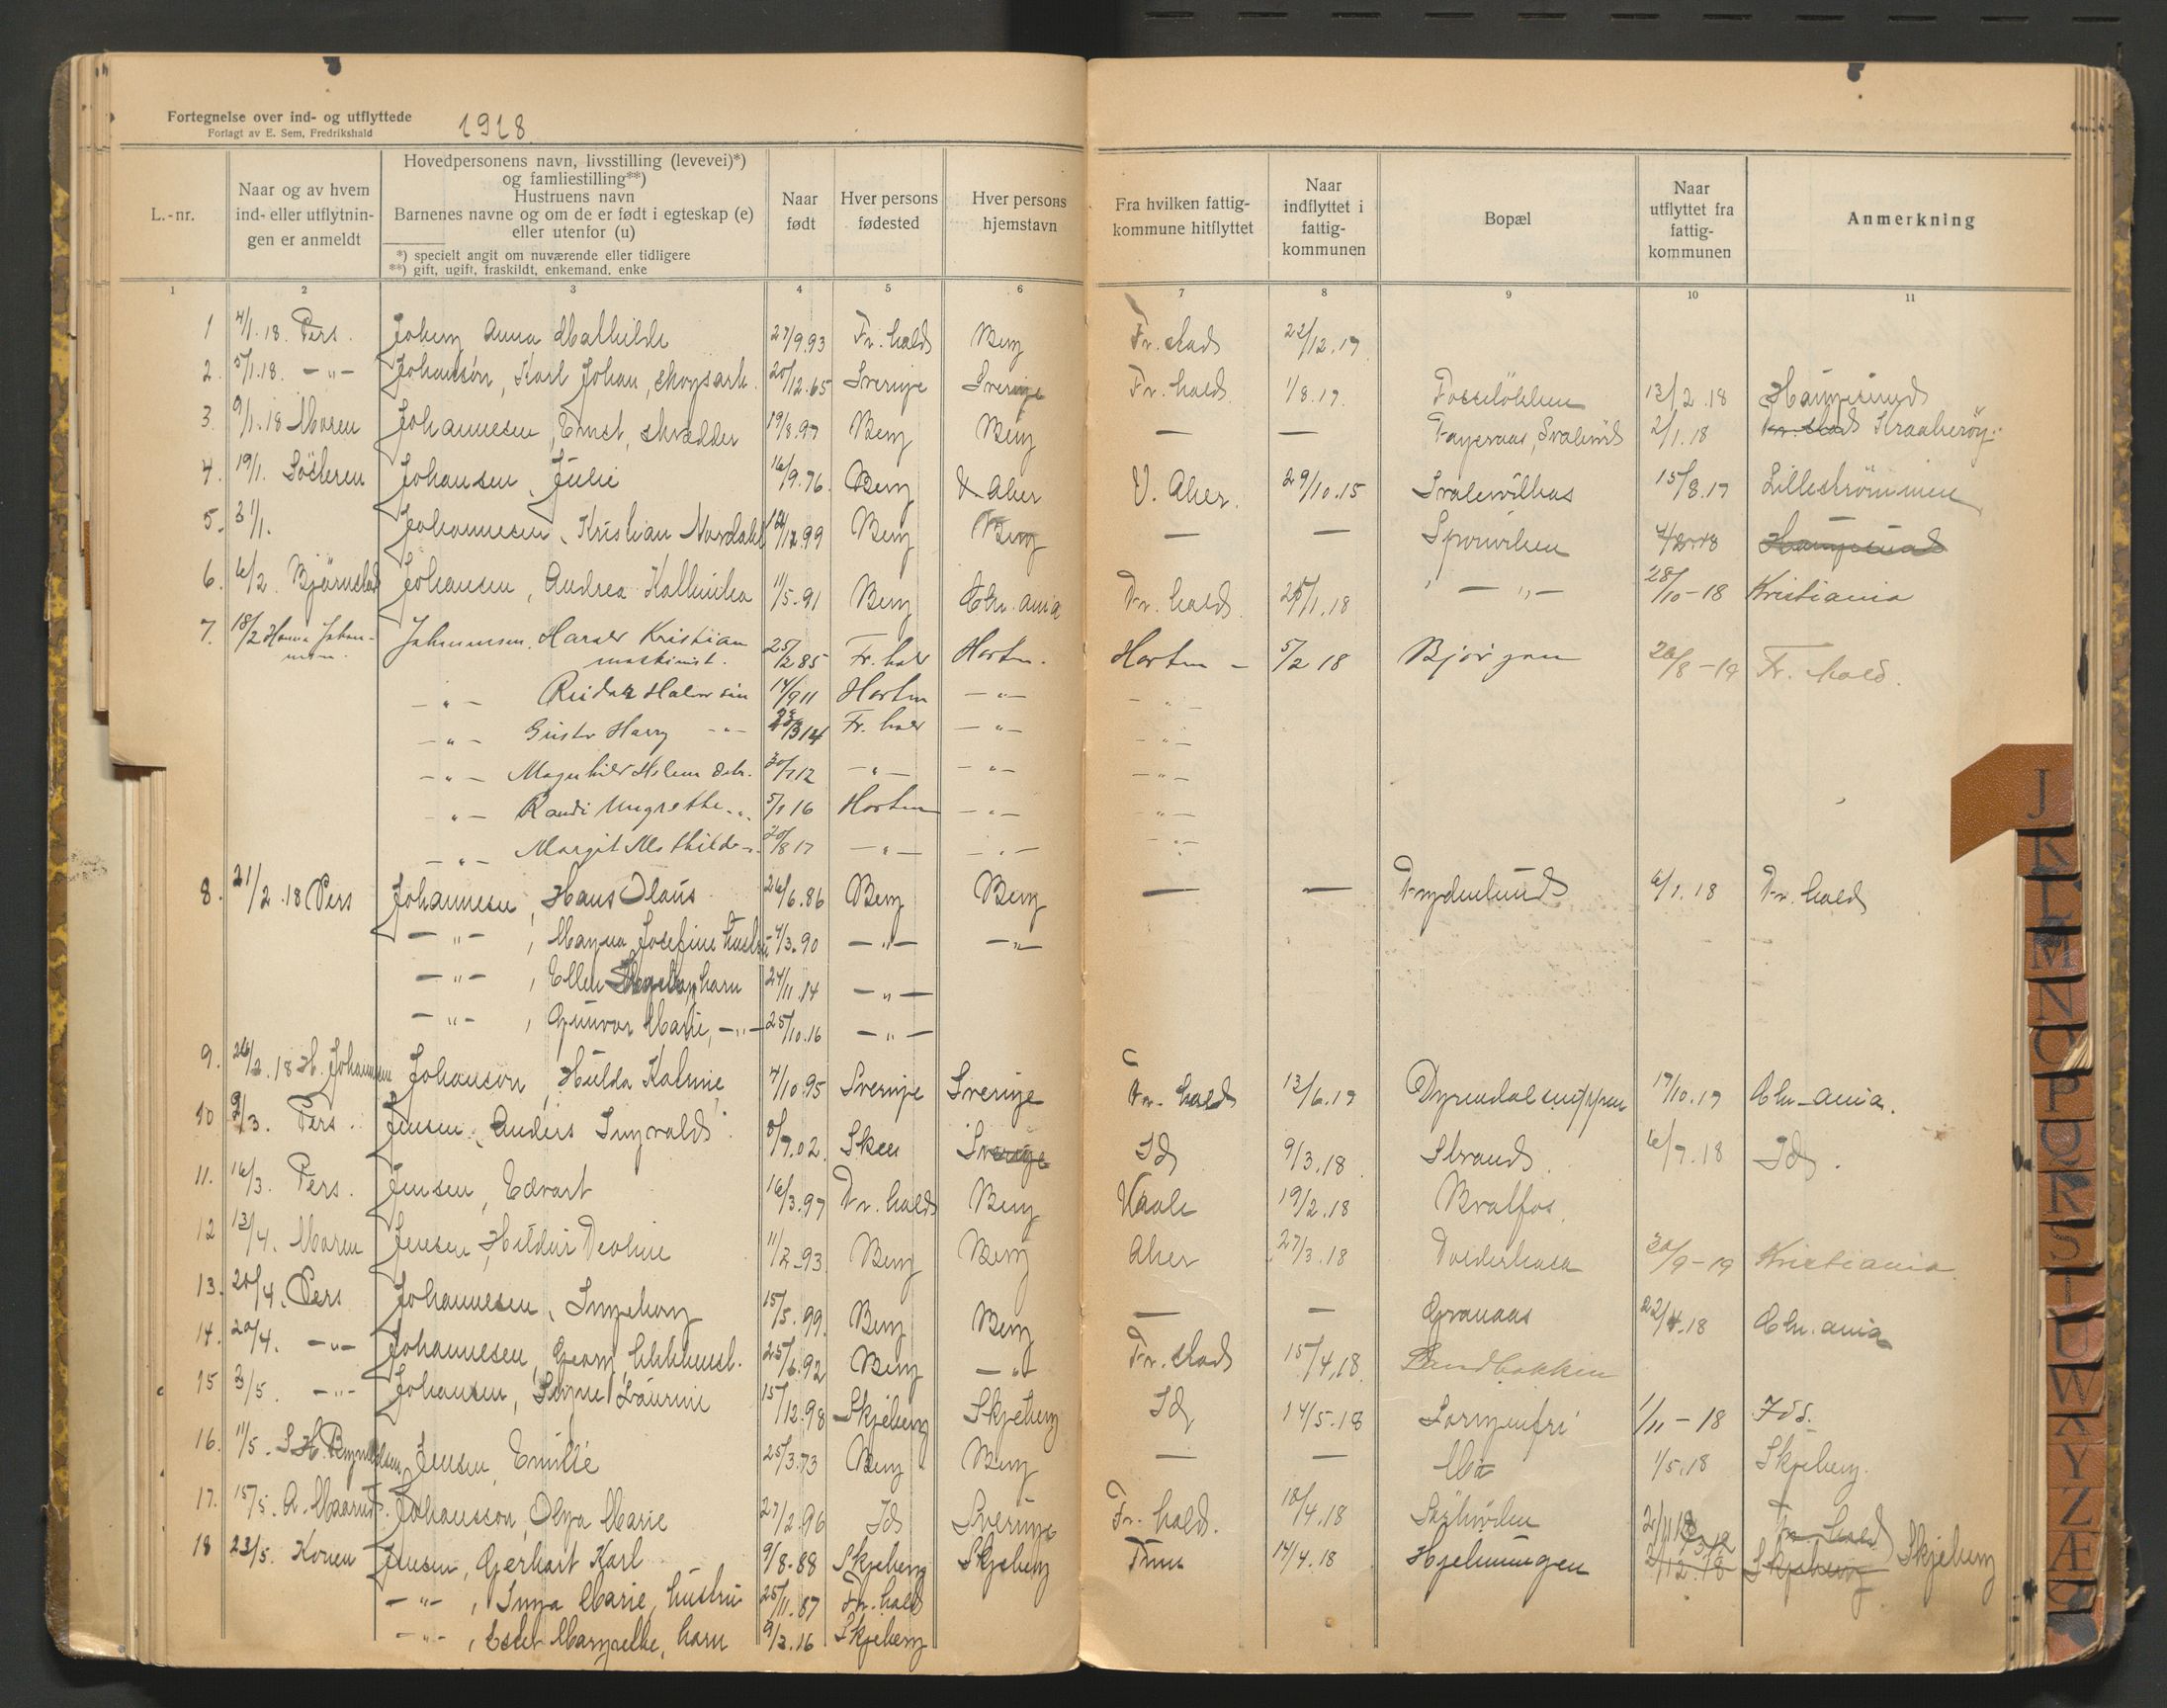 Fortegnelse over ind- og utflyttede
Forlagt av E. Sem, Fredrikshald
1918
L.-nr.
Naar og av hvem ind- eller utflytnin- gen er anmeldt
Hovedpersonens navn, livsstilling (levevei)*)
og famliestilling**)
Hustruens navn
Barnenes navne og om de er født i egteskap (e)
eller utenfor (u)
*) specielt angit om nuværende eller tidligere
**) gift, ugift, fraskildt, enkemand, enke
Naar født
Hver persons fødested
Hver persons hjemstavn
Fra hvilken fattig- kommune hitflyttet
Naar indflyttet i fattig- kommunen
Bopæl
Naar utflyttet fra fattig- kommunen
Anmerkning
1 2 3 4 5 6 7 8 9 10 11
1 4/1.18. Pers. Joberg Anna Mathilde 27/9.93 Fr.hald Berg Fr.stad 22/12.17
2. 5/1.18. -"- Johansson, Karl Johan, skogsarb. 20/12.65 Sverige Sverige Fr.hald 1/8.17. 13/2.18
3. 9/1.18 Maren Johannesen, Ernst, skrædder 19/8.97 Berg Berg — — 2/1.18 Kraakerøy
4. 19/1. Johansen, Julie 16/9.76 Berg V. Aker V. Aker. 29/10.15 15/8.17 Lillestrømmen
5. 31/1. Johannesen, Kristian Nordahl 12.99 Berg Berg — —
6. 6/2. Bjørnstad Johansen, Andrea Kathinka 11/5.91 Berg Chr.ania Fr.hald 1.18 -"- 28/10-18 Kristiania
7. 18/2 Hanna Johan- Johannesen, Harald Kristian
maskinist. 25/2 85 Fr.hald Horten. Horten - 5/2 18 Bjørgen 8-19 Fr.hald.
-"- Reidar Halvor søn 14/9 11 Horten -"- -"-
-"- Gustv Harry -"- 3 14 Fr.hald -"- -"-
-"- Magnhild Helene datr. 30/7 12 -"- -"- -"-
-"- Randi Margrethe -"- 5/1 16 Horten -"- -"-
-"- Margit Mathilde -"- 20/8 17 -"- -"- -"-
8. 21/2.18 Pers Johannesen, Hans Olaus 26/6.86 Berg Berg — — Frydenlund 6/1.18 Fr.hald
-"-, Magna Josefine hustru 4/3.90 -"- -"-
-"-, Ellen barn 24/11.14 -"-
-"-, Gunvor Marie, -"- 25/10.16 -"-
9. 26/2.18 H. Johansen Johanson, Hulda Katrine 4/10.95 Sverige Sverige Fr.hald 13/6.17 17/10.17 Chr.ania.
10 9/3. Pers. Jensen, Anders Ingvald 8/7.02 Skee Sverige Id 9/3.18 Strand. 6/7.18 Id.
11. 16/3. Pers. Jensen, Edvart 16/3.97 Fr.hald Berg Vaale 19/2.18 Bratfos.
12 13/4. Maren Jensen, Hildur 11/2.93 Berg Berg Aker 27/3.18 30/9-19 Kristiania
13. 20/4. Pers Johannesen, Ingeborg 15/5.99. Berg Berg — — Granaas 22/4.18 Chr.ania
14. 20/4. -"- Johannesen, Georg, 25/6.92 Berg -"- Fr.stad 15/4.18. Sandbakken
15 3/5. -"- Johansen, Signe Laurine 15/12.98 Skjeberg Skjeberg Id, 14/5.18 Sorgenfri 1/11-18 Idd.
16. 11/5. Jensen, Emilie 25/3.73 Berg Berg — — Mo 1/5.18 Skjeberg.
17. 15/5. A. Johansson, Olga Marie 27/2.96 Id Sverige Fr.hald. 18/4.18 Fr.hald
18 23/5. Konen Jensen, Gerhart Karl 9/8.88 Skjeberg Skjeberg Tune 14/4.18 Hjelmungen Skjeberg Skjeberg
-"-, Inga Marie, hustru 25/11.87 Fr.hald
-"-, Ester Margrethe, barn 9/3.16 Skjeberg
J K L M N O P Q R S T U W X Y Z Æ Ø